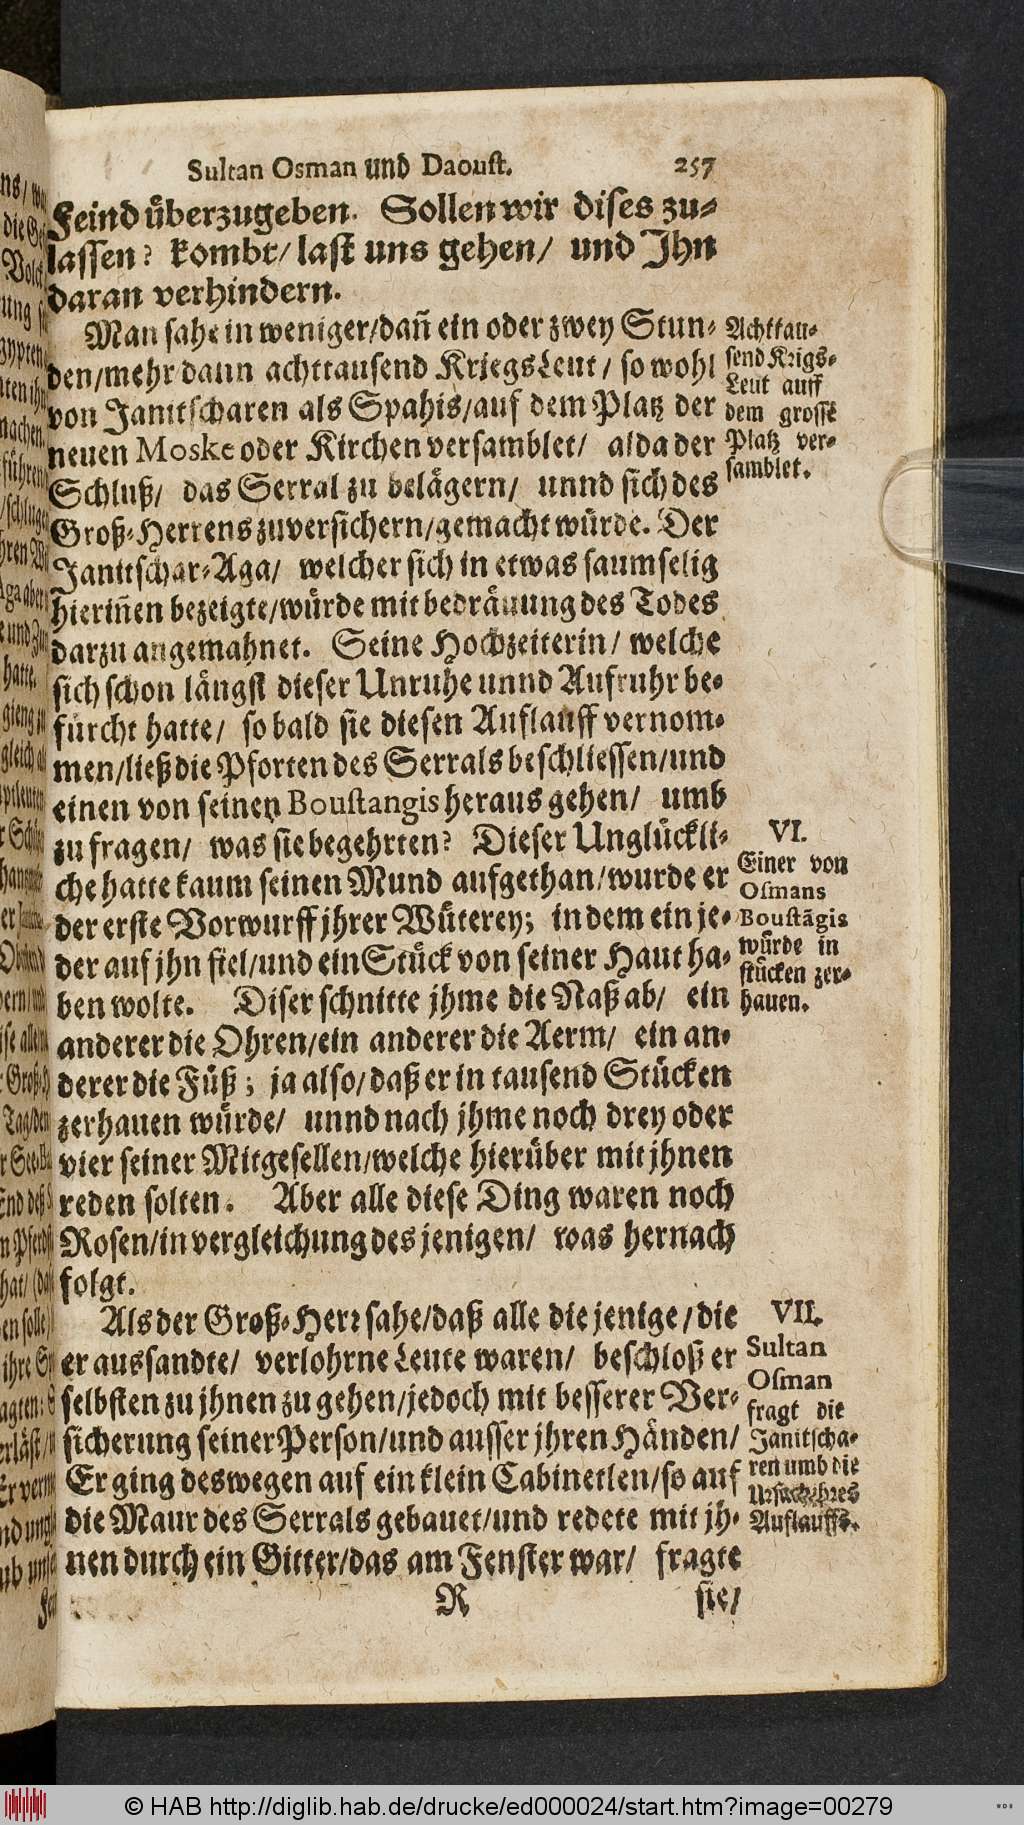 Sultan Osman und Daoust. 257
Feind überzugeben. Sollen wir dises zu-
lassen? kombt/ last uns gehen/ und Ihn
daran verhindern.
Man sahe in weniger/dañ ein oder zwey Stun-
den/mehr dann achttausend KriegsLeut/ so wohl
von Janitscharen als Spahis/auf dem Platz der
neuen Moske oder Kirchen versamblet/ alda der
Schluß/ das Serral zu belägern/ unnd sich des
Groß-Herrens zuversichern/gemacht würde. Der
Janitschar-Aga/ welcher sich in etwas saumselig
hieriñen bezeigte/würde mit bedräuung des Todes
darzu angemahnet. Seine Hochzeiterin/ welche
sich schon längst dieser Unruhe unnd Aufruhr be-
fürcht hatte/ so bald sie diesen Auflauff vernom-
men/ließ die Pforten des Serrals beschliessen/und
einen von seinen Boustangis heraus gehen/ umb
zu fragen/ was sie begehrten? Dieser Unglückli-
che hatte kaum seinen Mund aufgethan/wurde er
der erste Vorwurff jhrer Wüterey; in dem ein je-
der auf jhn fiel/und ein Stück von seiner Haut ha-
ben wolte. Diser schnitte jhme die Naß ab/ ein
anderer die Ohren/ein anderer die Aerm/ ein an-
derer die Füß; ja also/daß er in tausend Stücken
zerhauen würde/ unnd nach jhme noch drey oder
vier seiner Mitgesellen/welche hierüber mit jhnen
reden solten. Aber alle diese Ding waren noch
Rosen/in vergleichung des jenigen/ was hernach
folgt.
Als der Groß-Herr sahe/daß alle die jenige/die
er aussandte/ verlohrne Leute waren/ beschloß er
selbsten zu jhnen zu gehen/jedoch mit besserer Ver-
sicherung seiner Person/und ausser jhren Händen/
Er ging deswegen auf ein klein Cabinetlen/so auf
die Maur des Serrals gebauet/und redete mit jh-
nen durch ein Gitter/das am Fenster war/ fragte
R sie/
Achttau-
send Krigs-
Leut auff
dem grosse
Platz ver-
samblet.
VI.
Einer von
Osmans
Boustãgis
würde in
stücken zer-
hauen.
VII.
Sultan
Osman
fragt die
Janitscha-
ren umb die
Ursach ihres
Auflauffs.
© HAB http://diglib.hab.de/drucke/ed000024/start.htm?image=00279